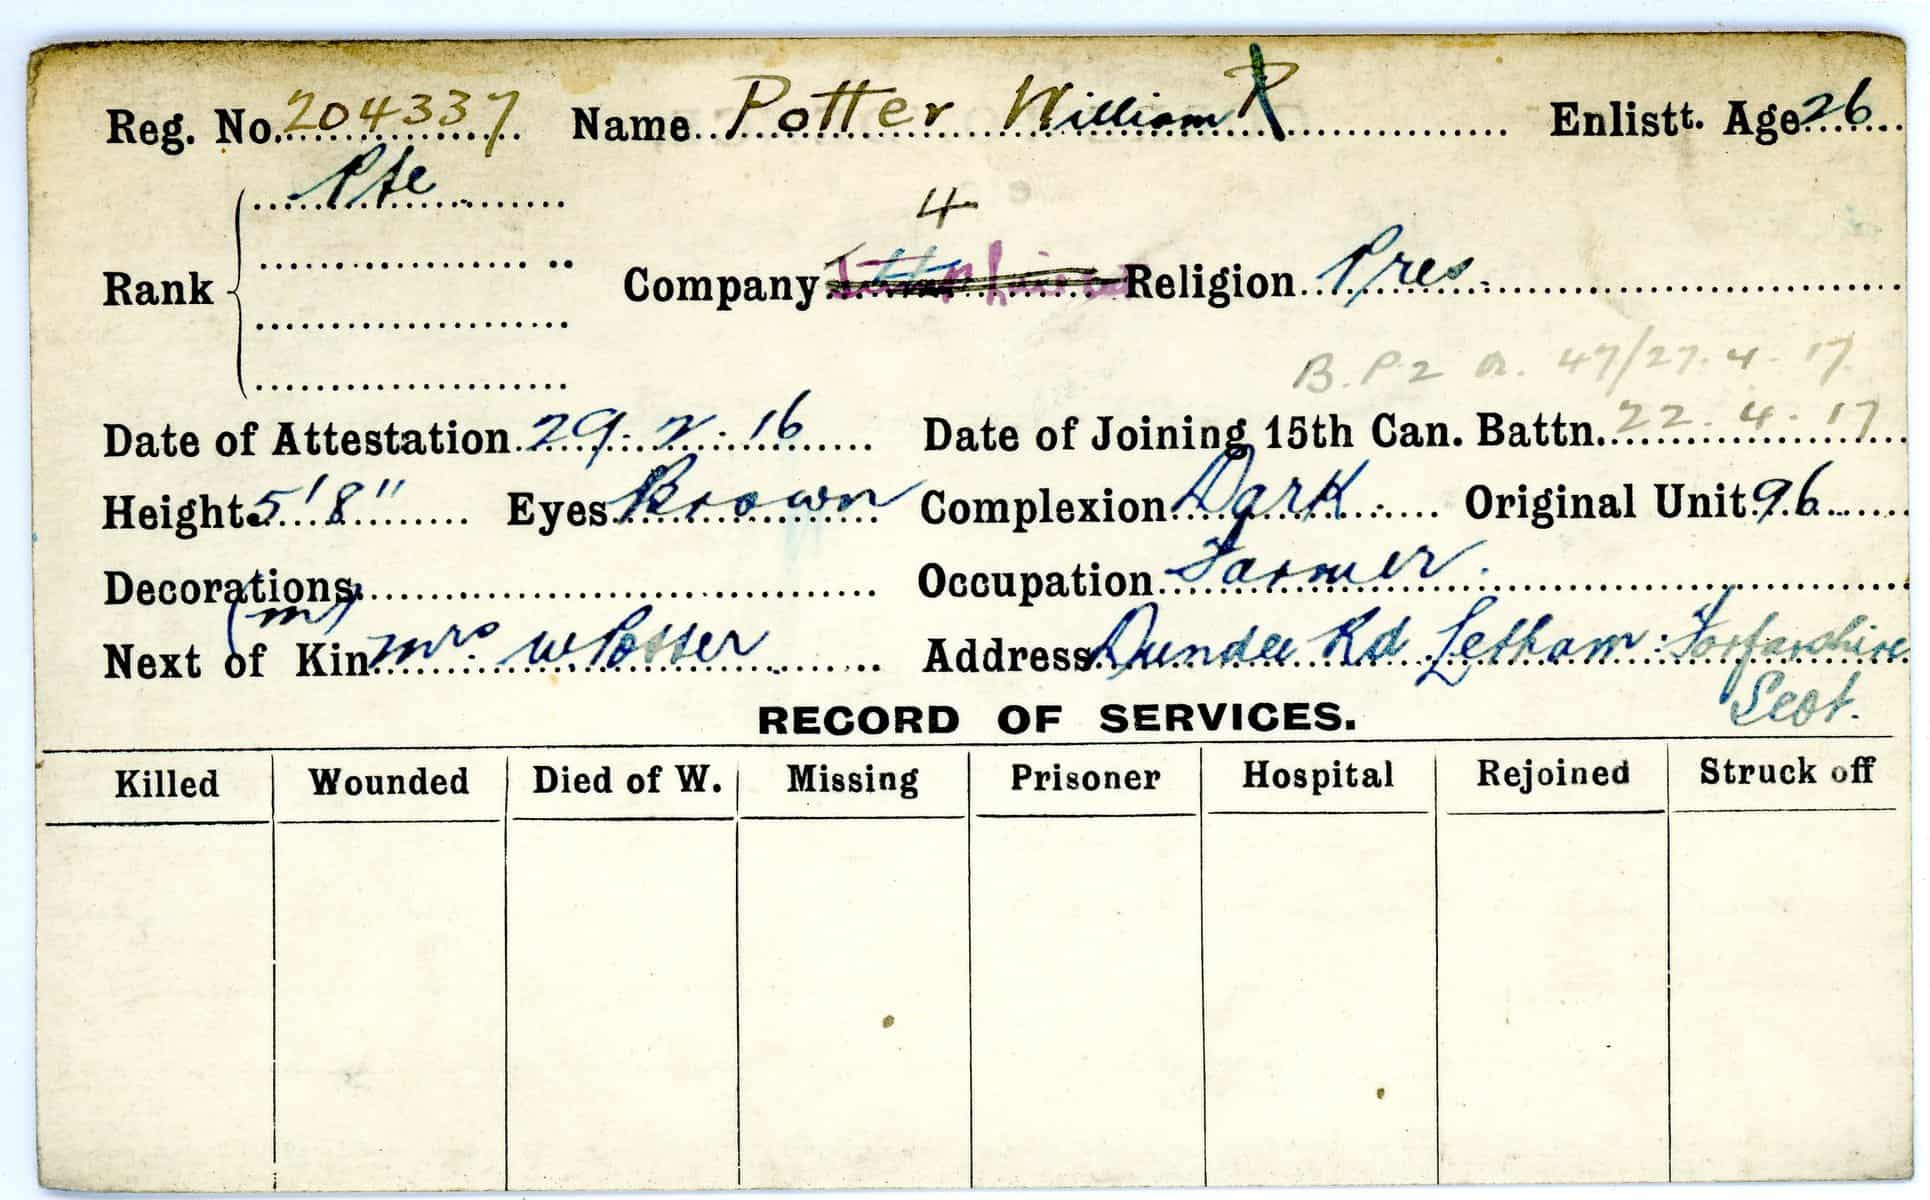 Reg. No. 204337 Name Potter William Enlistt. Age 26
Pte
4
Rank Company Religion Pres.
B.P.2 O. 47/27.4.17
Date of Attestation 29.2.16 Date of Joining 15th Can. Battn. 22.4.17
Height 5'8" Eyes Brown Complexion Dark Original Unit 96
Decorations Occupation Farmer.
(m)
Next of Kin Mrs W Potter Address Dundee Rd Letham Forfarshire
Scot.
RECORD OF SERVICES.
Killed Wounded Died of W. Missing Prisoner Hospital Rejoined Struck off